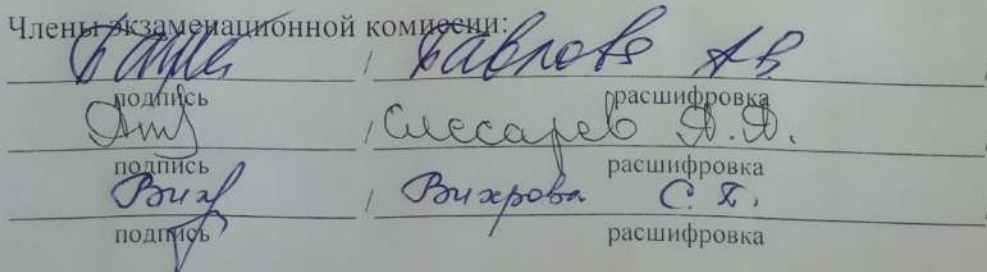 Члены экзаменационной комиссии:
/ Павлова А.В.
подпись расшифровка
/ Слесарев Д.Д.
подпись расшифровка
Вих / Вихрова С.
подпись расшифровка